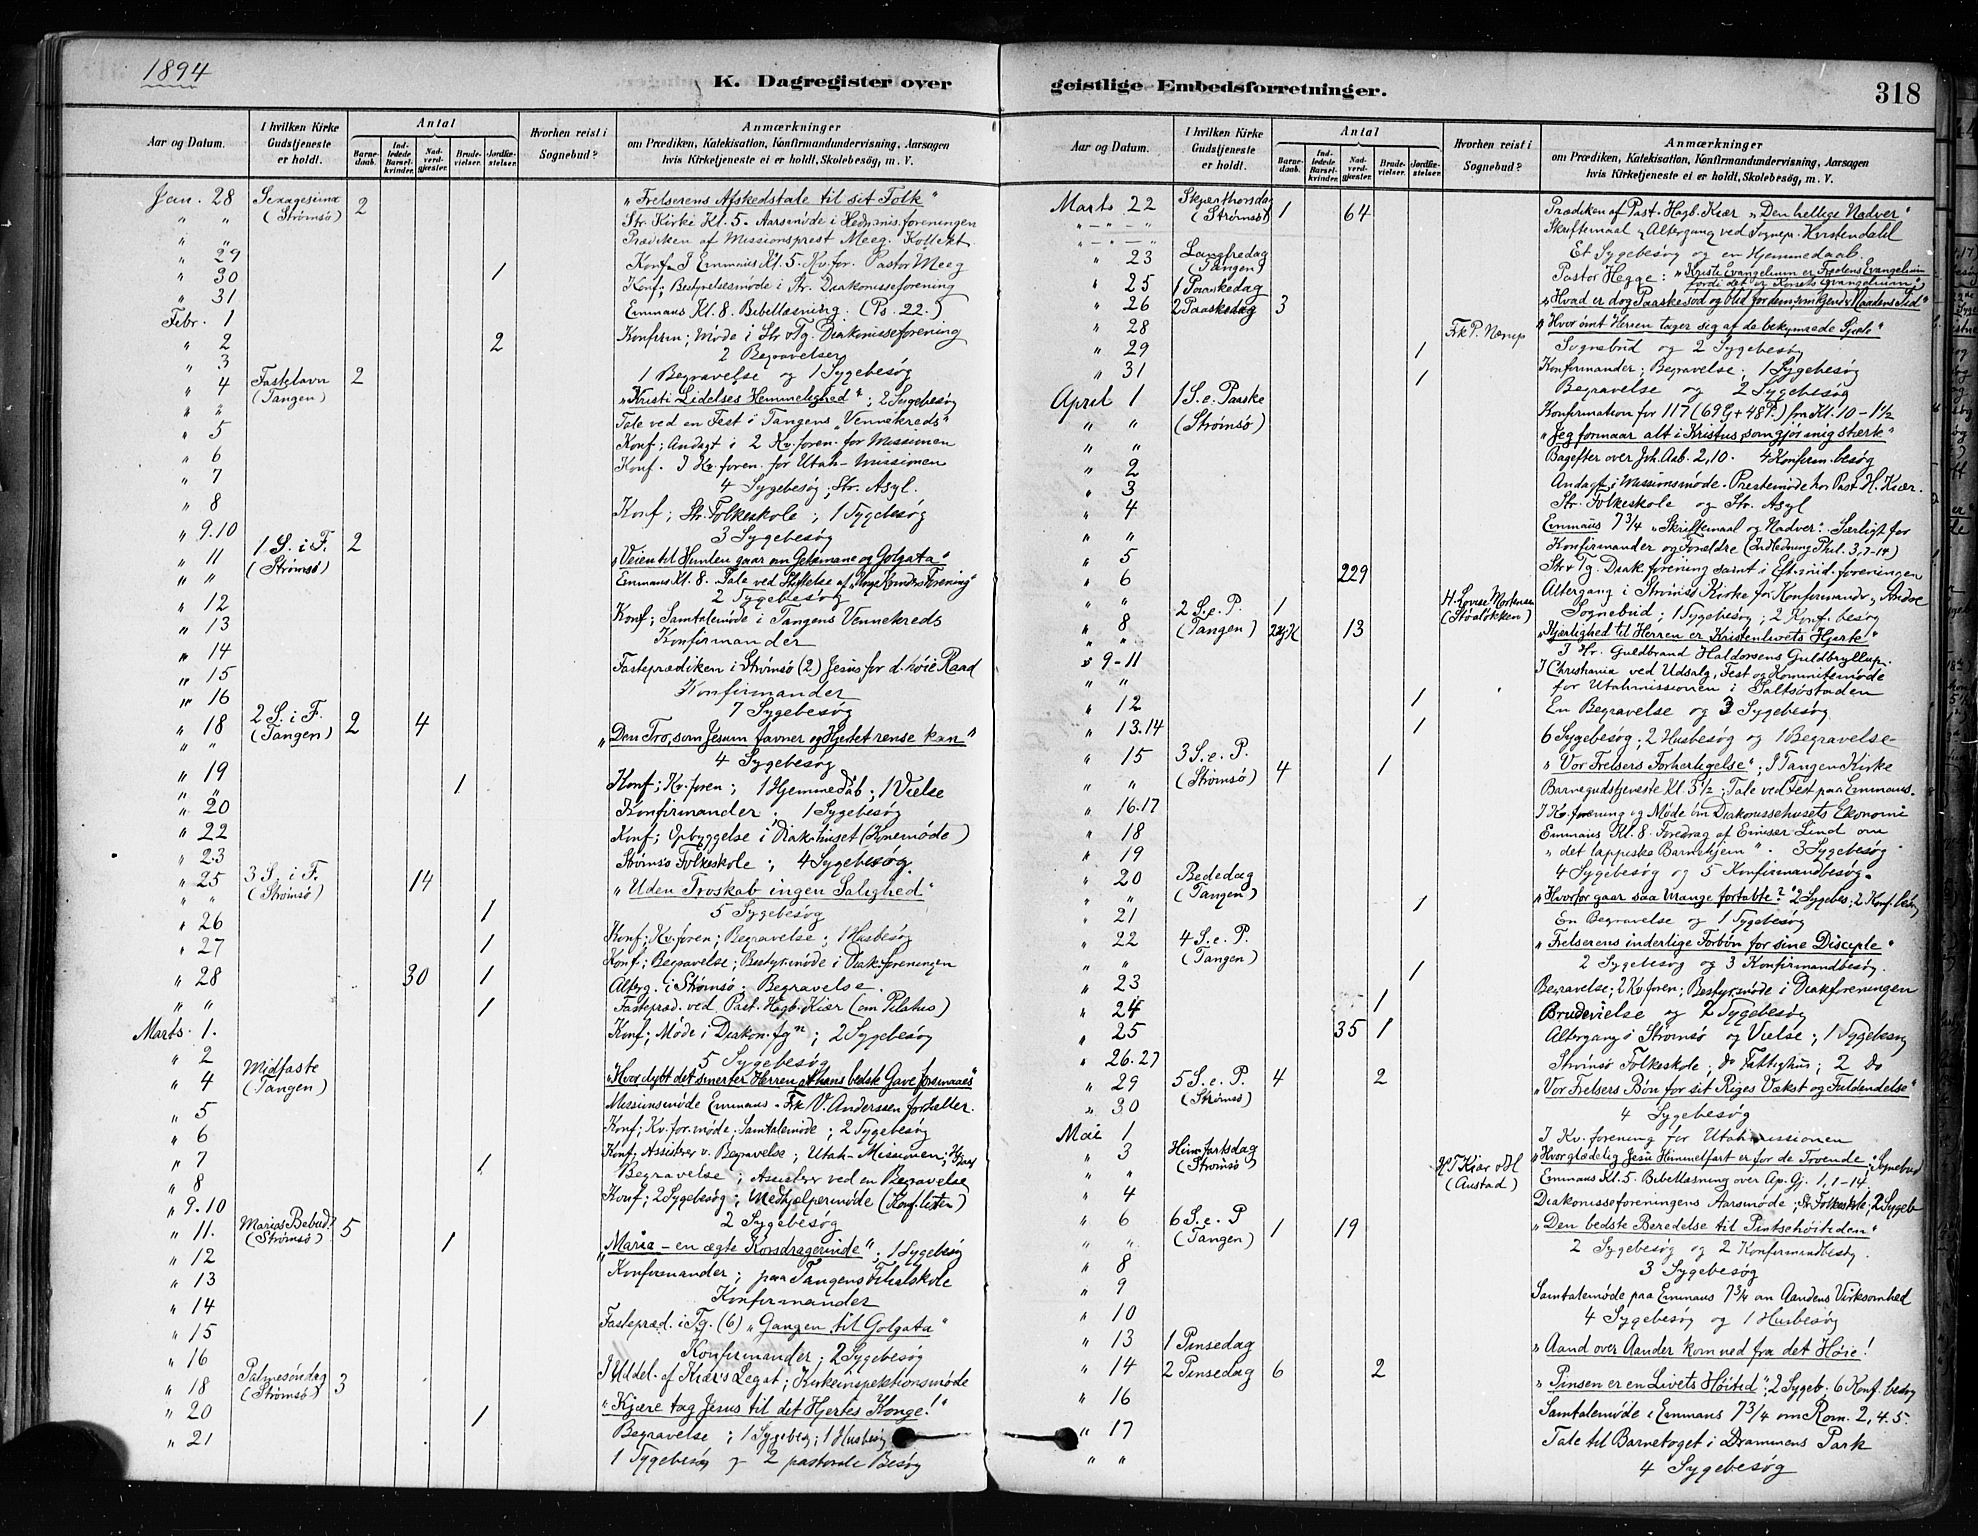 1894
K. Dagregister over
Aar og Datum.
I hvilken Kirke Gudstjeneste er holdt.
Antal
Barnedaab.
Indledede Barselkvinder.
Nadverdgjæster.
Brudevielser.
Jordfæstelser.
Hvorhen reist i Sognebud?
Anmærkninger
om Prædiken, Katekisation, Konfirmandundervisning, Aarsagen
hvis Kirketjeneste ei er holdt, Skolebesøg, m. V.
Jan. 28 Sexagesima (Strømsø) 2 "Frelserens Afskedstale til sit Folk"
" " Str. Kirke Kl. 5. Aarsmøde i Hedn.mis.foreningen
" " Prædiken af Missionsprest Meeg. Kollekt
" 29 Konf. I Emmaus Kl. 5. Kv.for. Pastor Meeg
" 30 1 Konf; Bestyrelsesmøde i Str. Diakonisseforening
" 31 Emmaus Kl. 8. Bibellæsning. (Ps. 22.)
Febr. 1 Konfirm; Møde i Str. & Tg. Diakonisseforening
" 2 2 2 Begravelser
" 3 1 Begravelse og 1 Sygebesøg
" 4 Fastelavn (Tangen) 2 "Kristi Lidelses Hemmelighed"; 2 Sygebesøg
" " Tale ved en Fest i Tangens "Vennekreds"
" 5 Konf; Andagt i 2 Kv.foren. for Missionen
" 6 Konf. I Kv.foren. for Utah-Missionen
" 7 4 Sygebesøg; Str. Asyl.
" 8 Konf; Str. Folkeskole; 1 Sygebesøg
" 9.10 3 Sygebesøg
" 11 1 S. i F. (Strømsø) 2 "Veien til Himlen gaar om Getsemane og Golgata"
" " Emmaus Kl. 8. Tale ved Stiftelse af "Unge Kvinders Forening"
" 12 2 Sygebesøg
" 13 Konf; Samtalemøde i Tangens Vennekreds
" 14 Konfirmander
" 15 Fasteprædiken i Strømsø (2) Jesus for d. høie Raad
" 16 Konfirmander
7 Sygebesøg
" 18 2 S. i F. (Tangen) 2 4 "Den Tro, som Jesum favner og Hjertet rense kan"
" " 4 Sygebesøg
" 19 1 Konf; Kv.foren; 1 Hjemmedaab; 1 Vielse
" 20 Konfirmander. 1 Sygebesøg
" 22 Konf; Opbyggelse i Diak.huset
" 23 Strømsø Folkeskole; 4 Sygebesøg
" 25 3 S. i F. (Strømsø) 14 "Uden Troskab ingen Salighed"
" " 5 Sygebesøg
" 26 1 Konf; Kv.foren; Begravelse; 1 Husbesøg
" 27 1 Konf; Begravelse; Bestyr.møde i Diak.foreningen
" 28 30 1 Alterg. i Strømsø; Begravelse.
" " 1 Fastepræd. ved Past. Hagb. Kiær (om Pilatus)
Marts. 1. Konf; Møde i Diakon.fgn; 2 Sygebesøg
" 2 5 Sygebesøg
" 4 Midfaste (Tangen) "Hvor dybt det smerter Herren, at hans bedste Gave forsmaaes"
" 5 Missionsmøde Emmaus. Frk V. Anderssen fortaller.
" 6 Konf; Kv.for.møde; Samtalemøde; 2 Sygebesøg
" 7 1 Konf; Assisterer v. Begravelse; Utah-Missionen;
" 8 Begravelse; Assisterer ved en Begravelse
" 9.10 Konf; 2 Sygebesøg; Medhjælpermøde (Konf.listen)
2 Sygebesøg
" 11. Marias Bebud. (Strømsø) 5 1 "Maria – en ægte Korsdragerinde"; 1 Sygebesøg
" 12 Konfirmander; paa Tangens Filialskole
" 13 Konfirmander
" 14 Fastepræd. i Tg. (6) "Gangen til Golgata"
" 15 Konfirmander; 2 Sygebesøg
" 16 I Uddel. af Kiær's Legat; Kirkeinspektionsmøde
" 18 Palmesøndag (Strømsø) 3 "Kjære tag Jesus til det Hjertes Konge!"
" 20 1 Begravelse; 1 Sygebesøg; 1 Husbesøg
" 21 1 Sygebesøg og 2 pastorale Besøg
geistlige Embedsforretninger.
318
Aar og Datum.
I hvilken Kirke Gudstjeneste er holdt.
Antal
Barnedaab.
Indledede Barselkvinder.
Nadverdgjæster.
Brudevielser.
Jordfæstelser.
Hvorhen reist i Sognebud?
Anmærkninger
om Prædiken, Katekisation, Konfirmandundervisning, Aarsagen
hvis Kirketjeneste ei er holdt, Skolebesøg, m. V.
Marts 22 Skjærthorsdag (Strømsø) 1 64 Prædiken af Past. Hagb. Kiær "Den hellige Nadver"
" Skriftemaal & Altergang ved Sognep. Kerstendahl
" Et Sygebesøg og en Hjemmedaab.
" 23 Langfredag (Tangen) Pastor Hegge: "Kristi Evangelium er Fredens Evangelium fordi det er Korsets Evangelium"
" 25 1 Paaskedag "Hvad er dog Paaske sød og blid for dem som kjend Naadens Tid"
" 26 2 Paaskedag 3 "Hvor ømt Herren tager sig af de bekymrede Sjæle"
" 28 Frk P. Nærup Sognebud og 2 Sygebesøg
" 29 1 Konfirmander; Begravelse. 1 Sygebesøg
" 31 1 Begravelse og 2 Sygebesøg
April 1 1 S. e. Paaske (Strømsø) Konfirmation for 117 (69 G + 48 P.) fra Kl. 10 - 1½
" " "Jeg formaar alt i Kristus, som gjør mig stærk"
" " Bagefter over Joh. Aab. 2,10. 4 Konfirm.besøg
" 2 Andagt i Missionsmøde. Prestemøde hos Past. H. Kiær.
" 3 Str. Folkeskole og Str. Asyl
" 4 Emmaus 7¾ "Skriftemaal og Nadver". Særligt for
" " Konfirmander og Forældre (Indledning Phil. 3,7-14)
" 5 Str & Tg. Diak.forening samt i Eft.mid.foreningen
" 6 229 Altergang i Strømsø Kirke for Konfirmander & Andre
" " H. Lovise Mortensen (Støaløkken) Sognebud; 1 Sygebesøg; 2 Konf.besøg
" 8 2 S. e. P. (Tangen) 1 13 "Kjærlighed til Herren er Kristenlivets Hjerte"
" " I Hr. Guldbrand Haldorsens Guldbryllup.
" 9-11 I Christiania ved Udsalg, Fest og Kommitemøde
" " for Utahmissionen i Saltsøstaden
" 12 1 En Begravelse og 3 Sygebesøg
" 13.14 1 6 Sygebesøg; 2 Husbesøg og 1 Begravelse
" 15 3 S. e. P. (Strømsø) 4 1 "Vor Frelsers Forherligelse"; I Tangen Kirke
" " Barnegudstjeneste Kl. 5½; Tale ved Fest paa Emmaus.
" 16.17 I Kv.forening og Møde om Diakonissehusets Økonomi
" 18 Emmaus Kl. 8. Foredrag af Emissær Lind om
" 19 "det lappiske Barnehjem". 3 Sygebesøg
4 Sygebesøg og 5 Konfirmandbesøg.
" 20 Bededag (Tangen) "Hvorfor gaar saa mange fortabte?" 2 Sygebes; 2 Konf.besøg
" 21 1 En Begravelse og 1 Sygebesøg
" 22 4 S. e. P. (Tangen) "Frelserens inderlige Forbøn for sine Disciple"
" " 2 Sygebesøg og 3 Konfirmandbesøg.
" 23 1 Begravelse; 2 Kv.foren; Bestyr.møde i Diakforeningen
" 24 1 Brudevielse og 2 Sygebesøg
" 25 35 1 Altergang i Strømsø og Vielse; 1 Sygebesøg
" 26.27 Strømsø Folkeskole; Do Fattighus; 2 Do
" 29 5 S. e. P. (Strømsø) 4 2 "Vor Frelsers Bøn for sit Riges Vækst og Fuldendelse"
" 30 4 Sygebesøg
Mai 1 I Kv.forening for Utahmissionen
" 3 Himmelfartsdag (Strømsø) "Hvor glædelig Jesu Himmelfart er for de Troende"; Sognebud
" " (Austad) Emmaus Kl. 5. Bibellæsning over Ap. Gj. 1, 1-14.
" 4 Diakonisseforeningens Aarsmøde; Str. Folkeskole; 2 Sygeb
" 6 6 S. e. P (Tangen) 1 19 "Den bedste Beredelse til Pintsehøitiden"
" " 2 Sygebesøg og 2 Konfirmandbesøg.
" 8 3 Sygebesøg
" 9 Samtalemøde paa Emmaus 7¾ om Aandens Virksomhed
" 10 4 Sygebesøg og 1 Husbesøg
" 13 1 Pinsedag "Aand over Aander kom ned fra det Høie!
" 14 2 Pinsedag 6 2 "Pinsen er en Livets Høitid"; 2 Sygeb. 6 Konf.besøg
" 16 Samtalemøde i Emmaus 7¾ om Rom. 2, 4.5.
" 17 Tale til Barnetoget i Drammens Park
" " 4 Sygebesøg